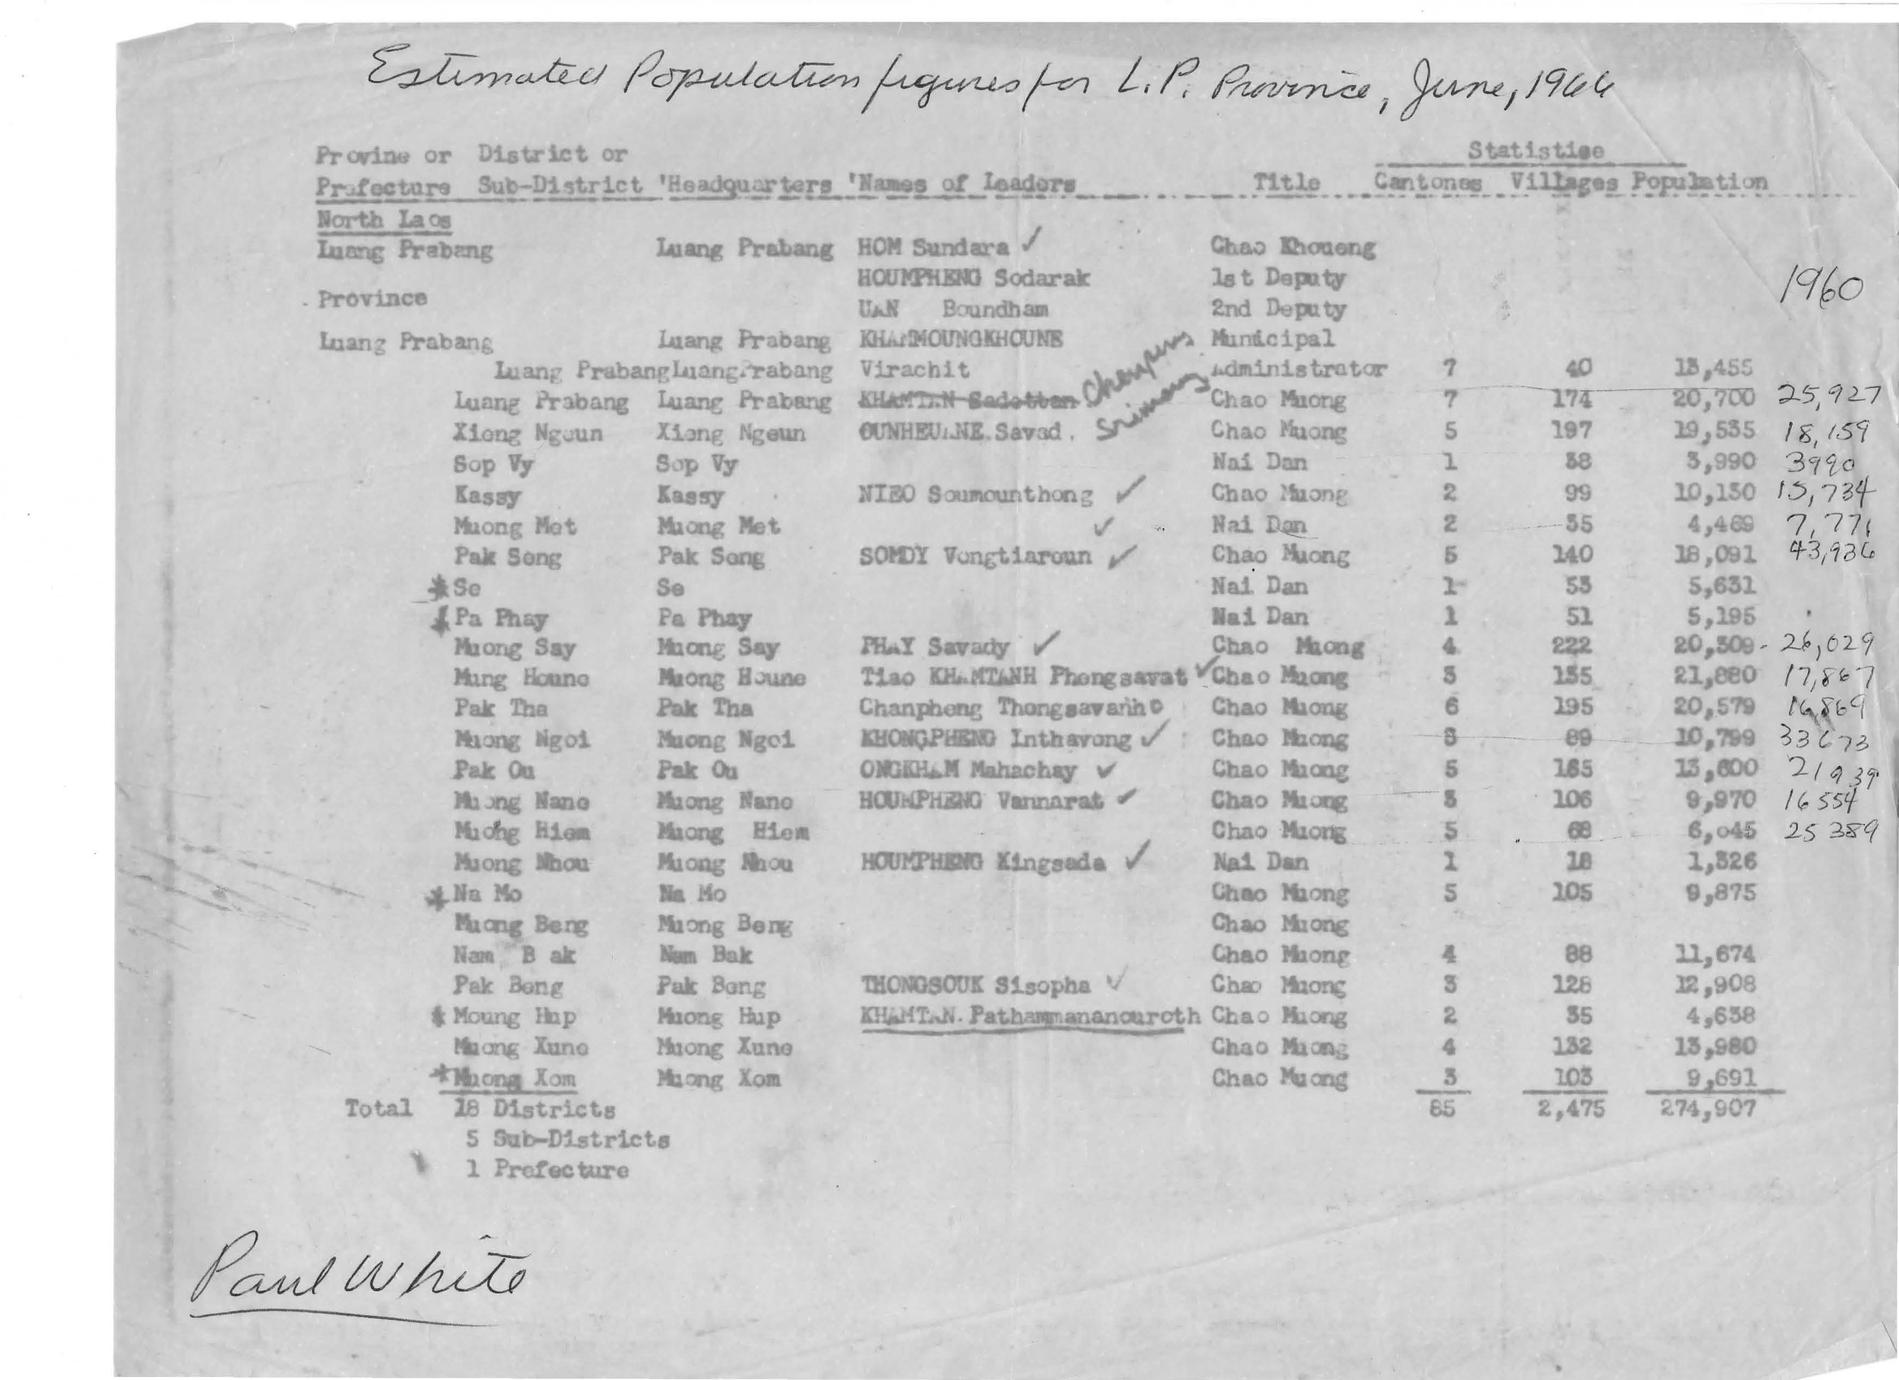 Estimated Population figures for L.P. Province, June, 1966
Provine or District or Statistise
Prefecture Sub-District 'Headquarters 'Names of Leaders Title Cantones Villages Population
North Laos
Luang Prabang Luang Prabang HOM Sundara ✓ Chao Khoueng
HOUMPHENG Sodarak 1st Deputy 1960
Province UAN Boundham 2nd Deputy
Luang Prabang Luang Prabang KHAMMOUNGKHOUNE Municipal
Luang Prabang Luang Prabang Virachit Administrator 7 40 13,455
Luang Prabang Luang Prabang KHAMTAN Sadettan Chao Muong 7 174 20,700 25,927
Xieng Ngeun Xieng Ngeun OUNHEUANE Savad. Chao Muong 5 197 19,535 18,159
Sop Vy Sop Vy Nai Dan 1 38 3,990 3990
Kassy Kassy NIEO Soumounthong ✓ Chao Muong 2 99 10,130 15,734
Muong Met Muong Met ✓ Nai Dan 2 35 4,469 7,771
Pak Seng Pak Seng SOMDY Vongtiaroun ✓ Chao Muong 5 140 18,091 43,936
* Se Se Nai Dan 1 53 5,631
* Pa Phay Pa Phay Nai Dan 1 51 5,195
Muong Say Muong Say PHAY Savady ✓ Chao Muong 4 222 20,309 - 26,029
Mung Houne Muong Houne Tiao KHAMTANH Phengsavat ✓ Chao Muong 3 135 21,880 17,867
Pak Tha Pak Tha Chanpheng Thongsavanh Chao Muong 6 195 20,579 16,869
Muong Ngoi Muong Ngoi KHONGPHENG Inthavong ✓ Chao Muong 3 89 10,799 33673
Pak Ou Pak Ou ONGKHAM Mahachay ✓ Chao Muong 5 165 13,600 21939
Muong Nane Muong Nane HOUMPHENG Vannarat ✓ Chao Muong 3 106 9,970 16554
Muong Hiem Muong Hiem Chao Muong 5 68 6,045 25389
Muong Nhou Muong Nhou HOUMPHENG Kingsada ✓ Nai Dan 1 18 1,326
* Na Mo Na Mo Chao Muong 5 105 9,875
Muong Beng Muong Beng Chao Muong
Nam B ak Nam Bak Chao Muong 4 88 11,674
Pak Beng Pak Beng THONGSOUK Sisopha ✓ Chao Muong 3 128 12,908
* Moung Hup Muong Hup KHAMTAN. Pathammananouroth Chao Muong 2 35 4,638
Muong Xune Muong Xune Chao Muong 4 132 13,980
* Muong Xom Muong Xom Chao Muong 3 103 9,691
Total 18 Districts 85 2,475 274,907
5 Sub-Districts
1 Prefecture
Paul White